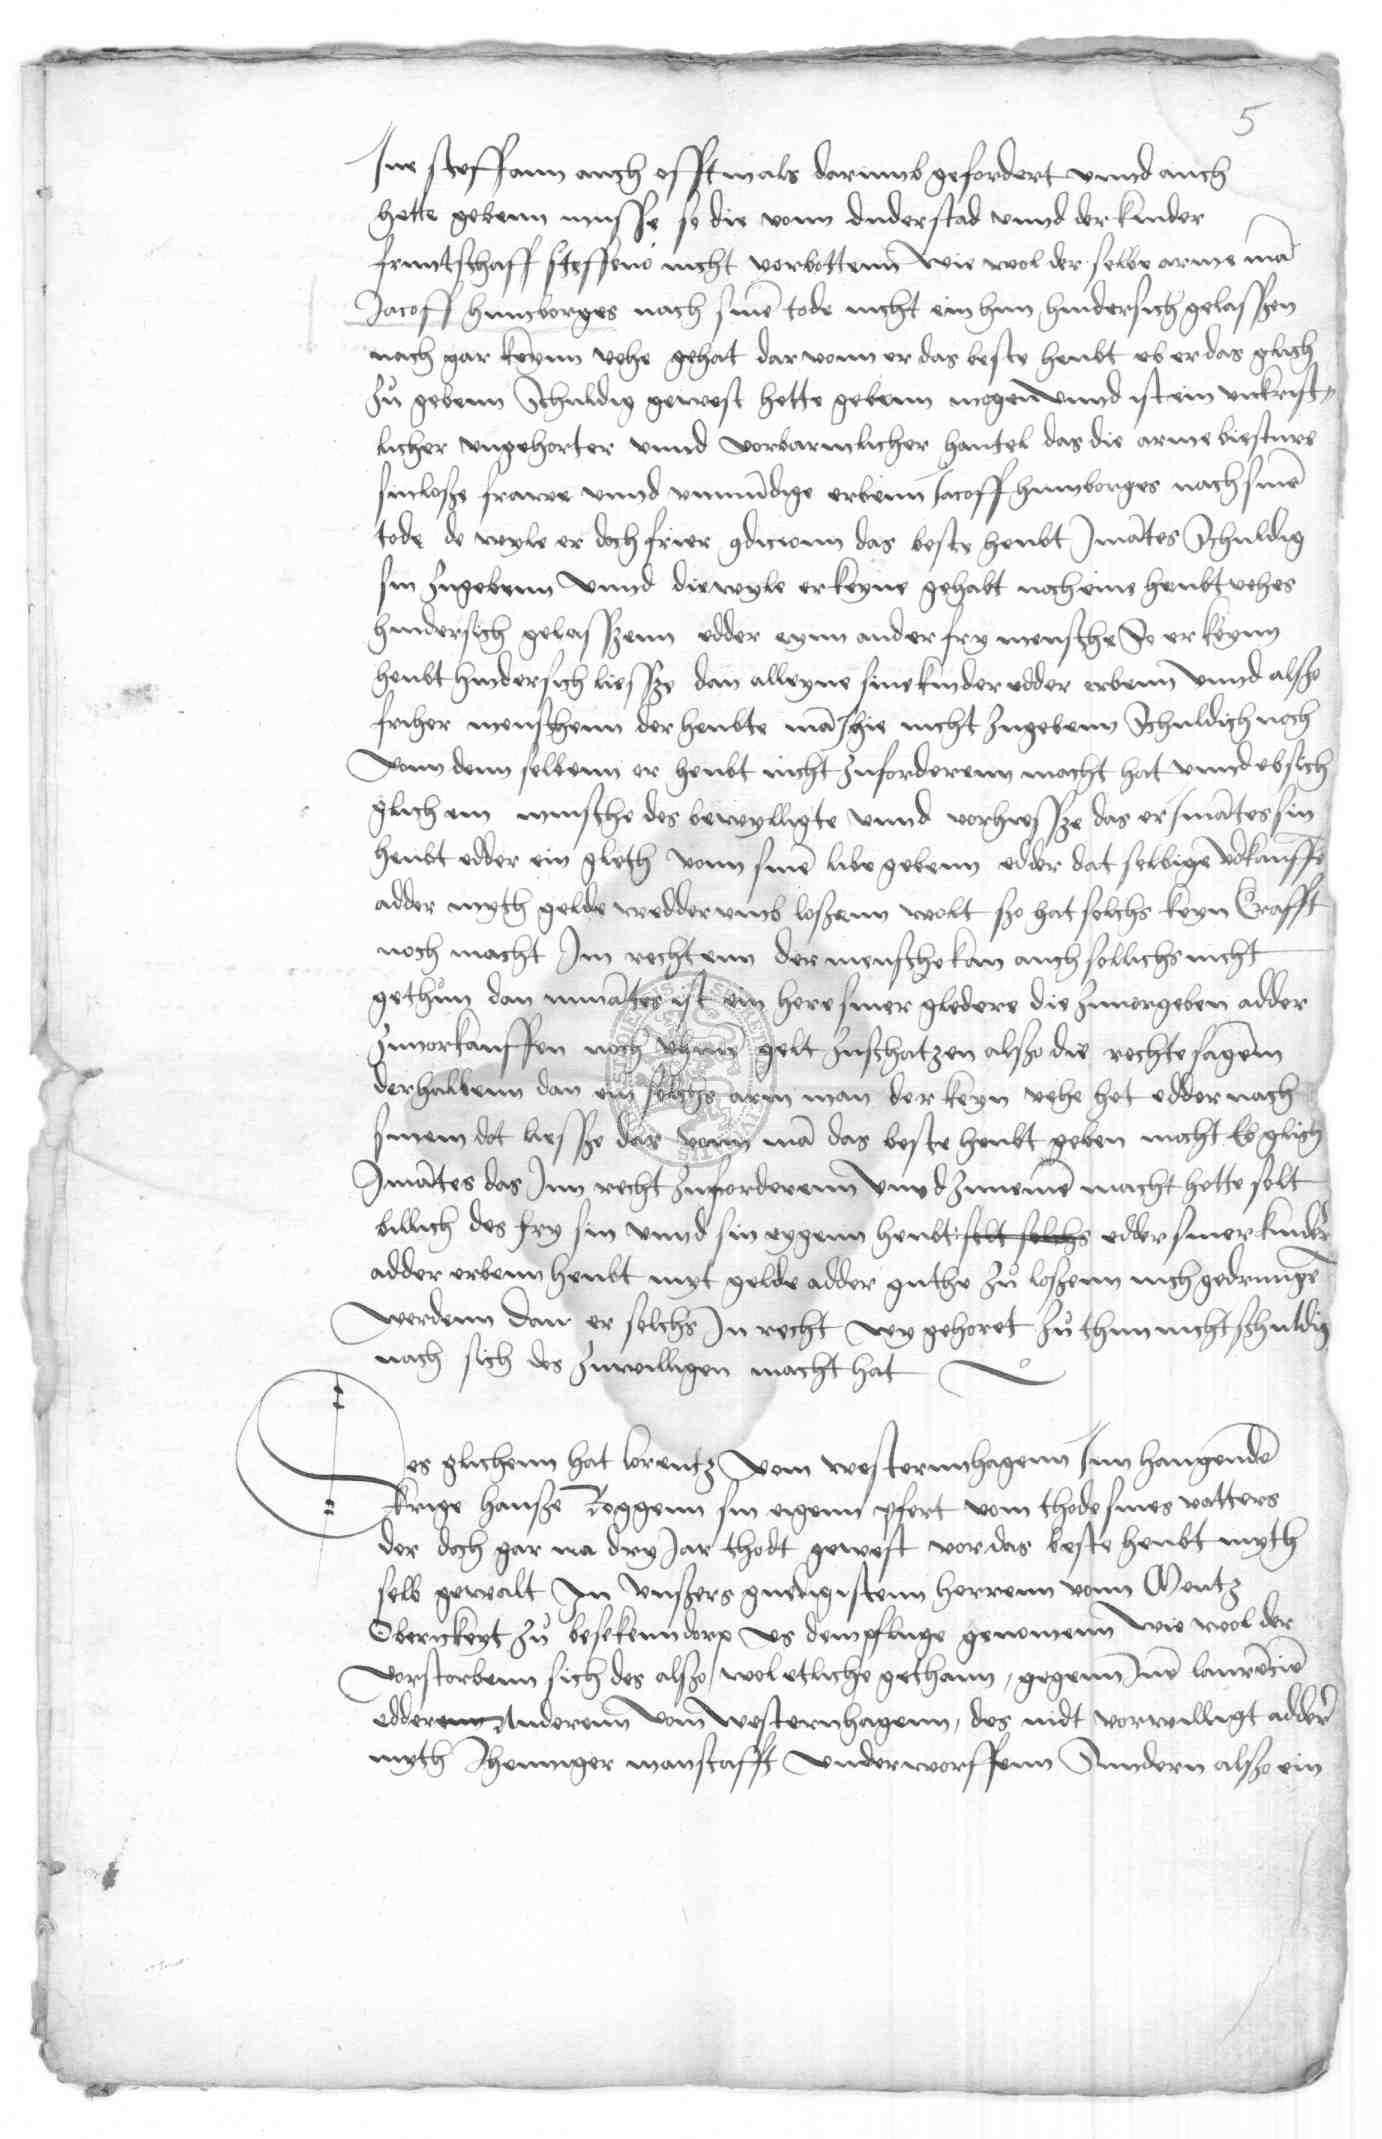 5
Ine steffann auch offtmals darumb gefordert unnd auch
hette gebenn musse so die vonn duderstad unnd der kinder
fruntschaff steffenö nicht vorbottenn wie wol der selbe arme mā
Jacoff humborges nach sinē tode nicht ein hun hindersich gelasszen
nach gar keynn vehe gehat dar vonn er das beste heubt ob er das glich
zů gebenn schuldig gewest hette gebenn mogen unnd ist ein unkrist-
licher ungehorter unnd vorbarmlicher hantel das die arme
sinlosze frawe unnd unmūdige erbenn Jacoff humborges nach sinē
tode de wyle er doch frier das beste heubt Jmātes schuldig
sin zugebenn unnd diewyle er keyne gehabt noch eins heubt vehes
hindersich gelasszenn edder eynn ander fry mensche so er keynn
heubt hindersich liessze dan alleyne sine kinder edder erbenn unnd alszo
friher menschenn der heubte mā hie nicht zugebenn schuldich noch
vonn denn selbenn er heubt nicht zuforderenn macht hat unnd ob sich
glich ein minsche des bewylligte unnd vorhiessze das er Jmātes sin
heubt edder ein gleth vonn sinē libe gebenn edder dat selbige vorkauffē
adder myth gelde wedderumb loszenn wolt szo hat solchs keyn Crafft
noch macht Im rechtenn der mensche kan auch sollichs nicht
gethůn dan nimātes ist ein here siner gledere die zuvorgeben adder
zuvorkauffen noch uhme gelt zuschatzen alszo die rechte sagenn
derhalbenn dan ein solchs arm man der keyn vehe het edder nach
sinem dot liessze dar vonn mā das beste heubt geben mocht Ob glich
Jmātes das Inn recht zuforderenn unnd zunemē macht hette solt
billich des fry sin unnd sin eygenn heubt solt solchs edder siner kinder
adder erbenn heubt myt gelde adder guthe zů loszenn nich gedrungē
werdenn dan er solchs In recht wy gehoret zů thun nicht schuldig
nach sich des zuwilligen macht hat
Des glichenn hat lorentz vom westernnhagenn Inn hangendē
krige hansze Roggenn sin eigenn pfert vom thode sines vatters
der doch gar na dry Jar thodt gewest vor das beste heubt myth
selb gewalt In unszers gnedigistenn herrenn vonn Mentz
Oberickeyt zů besekenndorp us dem pfluge genomenn wie wol der
vorstorbenn sich des alszo wol etliche gethann, gegenn Inē laurēciē
edderenn Anderenn vom westernhagenn, des nidt vorwilligt adder
myth Jhenniger manscafft underworffenn Sundern alszo ein